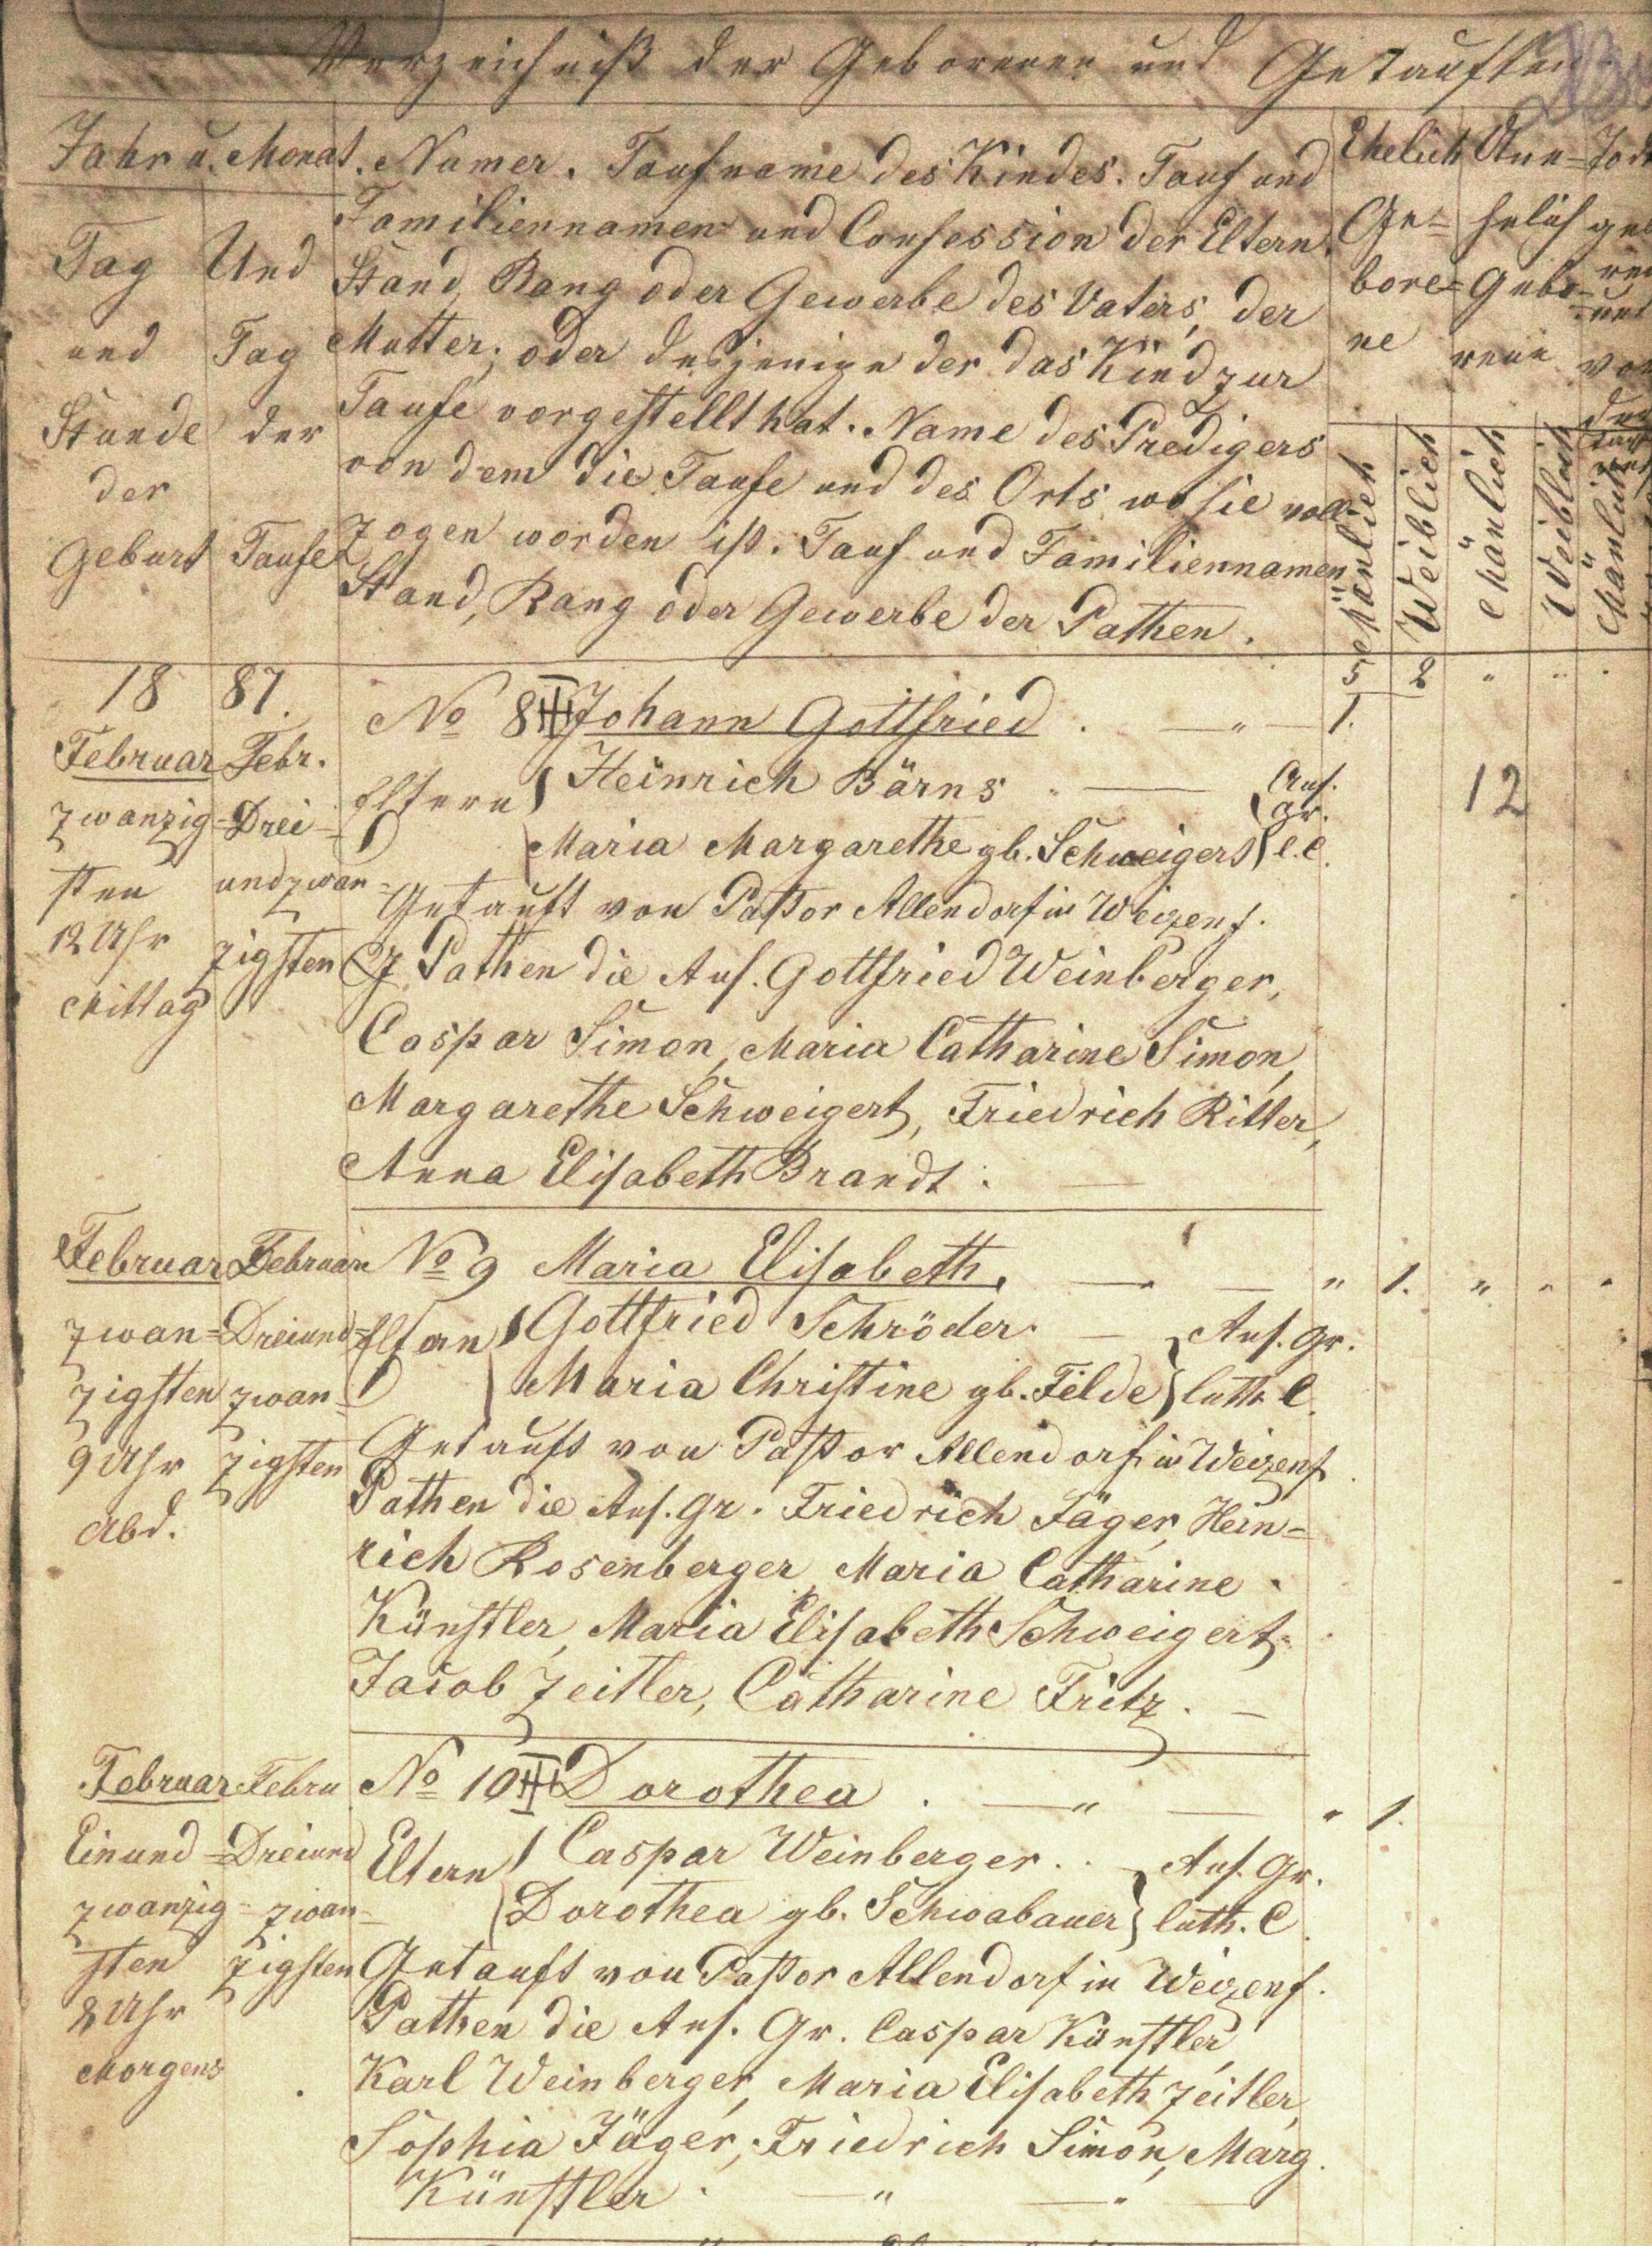 Verzeichniß der Geborenen und Getauften.
Jahr u. Monat. Numer. Taufname des Kindes. Tauf und
Familiennamen und Confession der Eltern.
Stand, Rang oder Gewerbe des Vaters, der
Mutter; oder desjenigen der das Kind zur
Taufe vorgestellt hat. Name des Predigers
von dem die Taufe und des Orts wo sie voll-
zogen worden ist. Tauf und Familiennamen
Stand, Rang oder Gewerbe der Pathen.
Tag Und
und Tag
Stunde der
der
Geburt Taufe
Ehelich
Ge=
bore=
ne
Une=
helich
Gebo=
rene
Mänlich
Weiblich
Mänlich
Weiblich
Mänlich
5 2 " " "
18 87.
Februar Febr.
zwanzig= Drei=
sten undzwan=
12 Uhr zigsten
Mittag
No 8 III Johann Gottfried . — " — 1.
Eltern Heinrich Bärns — Ans.
gr.
Maria Margarethe gb. Schweigert l. C.
Getauft von Pastor Allendorf in Weizenf.
Pathen die Ans. Gottfried Weinberger,
Caspar Simon, Maria Catharine Simon,
Margarethe Schweigert, Friedrich Ritter,
Anna Elisabeth Brandt. —
12
Februar Februar
zwan= Dreiund=
zigsten zwan=
9 Uhr zigsten
Abd.
No 9 Maria Elisabeth. — — " 1. " " "
Eltern Gottfried Schröder. — Ans. gr.
Maria Christine gb. Felde luth. C.
Getauft von Pastor Allendorf in Weizenf.
Pathen die Ans. gr. Friedrich Jäger, Hein=
rich Rosenberger, Maria Catharine
Künstler, Maria Elisabeth Schweigert,
Jacob Zeitler, Catharine Fritz. —
Februar Febru
Einund= Dreiund
zwanzig= zwan=
sten zigsten
8 Uhr
Morgens
No 10 III Dorothea . — " — " 1.
Eltern Caspar Weinberger. — Ans. Gr.
Dorothea gb. Schwabauer luth. C.
Getauft von Pastor Allendorf in Weizenf.
Pathen die Ans. Gr. Caspar Künstler,
Karl Weinberger, Maria Elisabeth Zeitler,
Sophia Jäger, Friedrich Simon, Marg.
Künstler. — " — " —